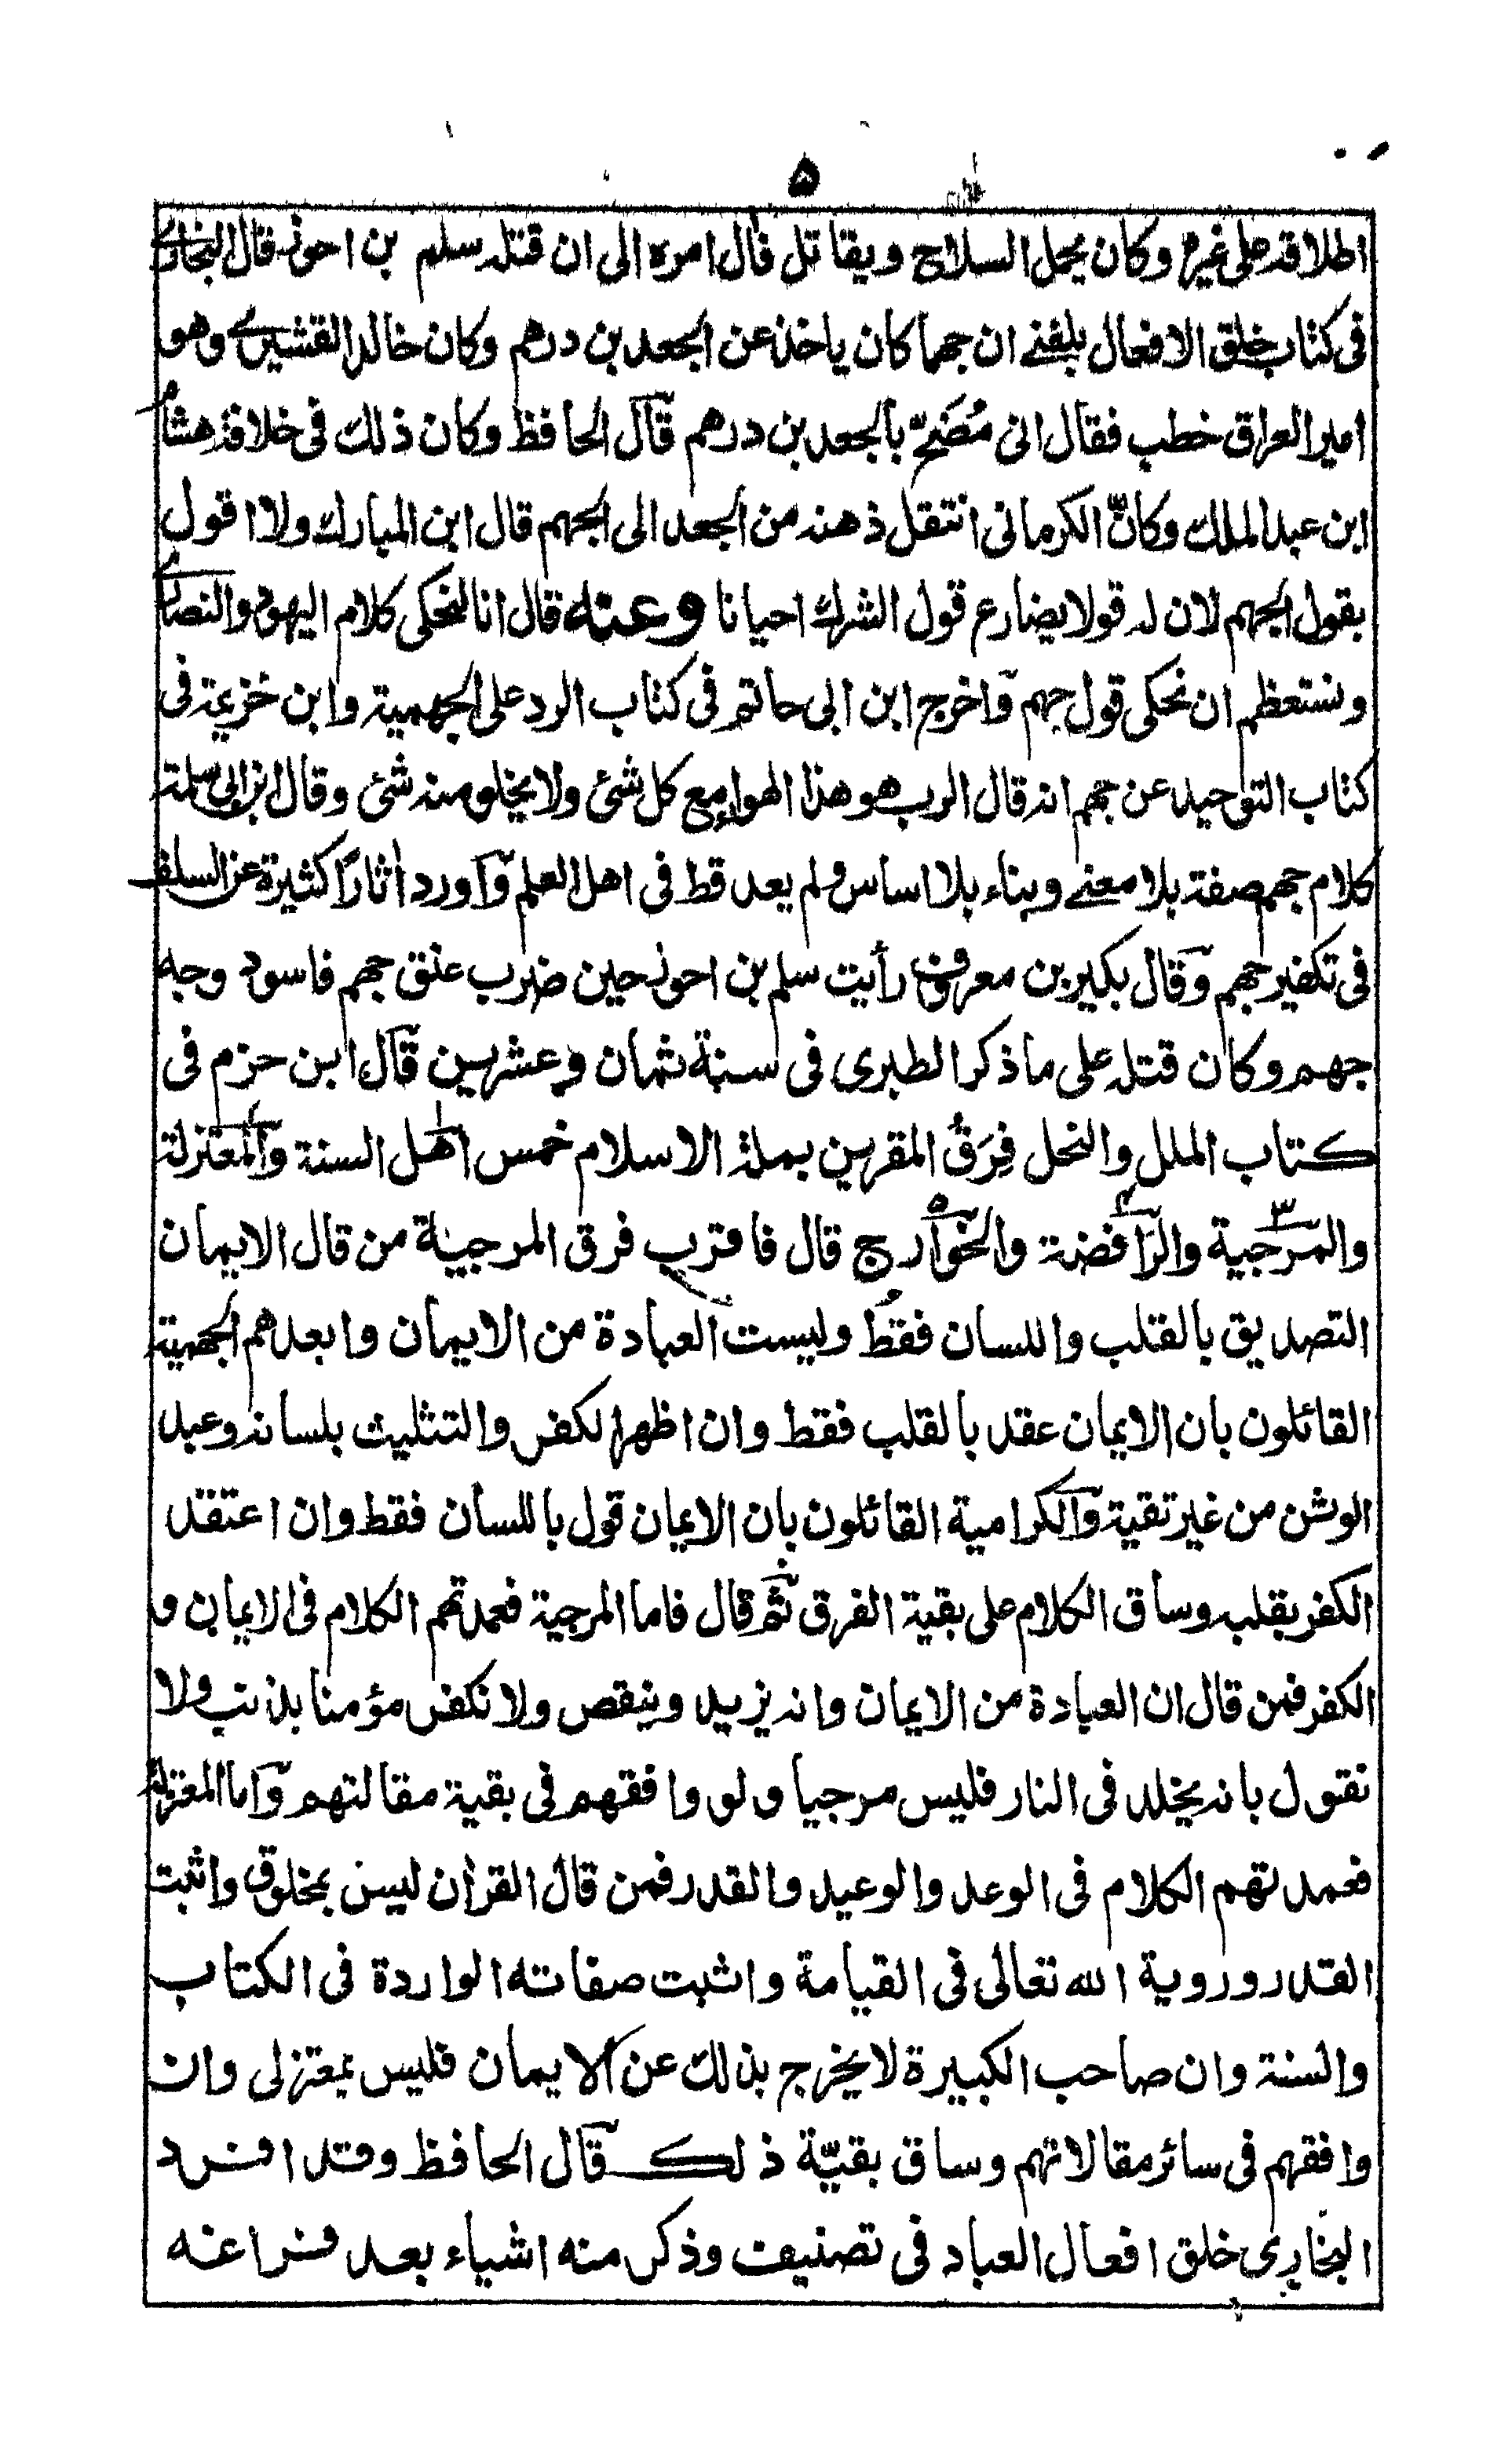 ۵
اطلاقه على غيره وكان يحمل السلاح ويقاتل فآل امره الى ان قتله سلم بن احوز قال البخارى
فى كتاب خلق الافعال بلغنى ان جهما كان ياخذ عن الجعد بن درهم وكان خالد القشيرى وهو
امير العراق خطب فقال انى مُضَحٍّ بالجعد بن درهم قال الحافظ وكان ذلك فى خلافة هشام
ابن عبد الملك وكانّ الكرمانى انتقل ذهنه من الجعد الى الجهم قال ابن المبارك ولا اقول
بقول الجهم لان له قولا يضارع قول الشرك احيانا وعنه قال انا لنحكى كلام اليهود والنصارى
ونستعظم ان نحكى قول جهم واخرج ابن ابى حاتم فى كتاب الرد على الجهمية وابن خزيمة فى
كتاب التوحيد عن جهم انه قال الرب هو هذا الهواء مع كل شئ ولا يخلو منه شئ وقال ابن ابى سلمة
كلام جهم صفة بلا معنى وبناء بلا اساس ولم يعد قط فى اهل العلم وآورد اٰثارًا كثيرة عن السلف
فى تكفير جهم وقال بكير بن معروف رأيت سلم بن احوز حين ضرب عنق جهم فاسود وجه
جهم وكان قتله على ما ذكر الطبرى فى سنة ثمان وعشرين قال ابن حزم فى
كتاب الملل والنحل فِرَقُ المقرين بملة الاسلام خمس اهل السنة والمعتزلة
والمرجية والرافضة والخوارج قال فاقرب فرق المرجيئة من قال الايمان
التصديق بالقلب واللسان فقط وليست العبادة من الايمان وابعدهم الجهمية
القائلون بان الايمان عقد بالقلب فقط وان اظهر الكفر والتثليث بلسانه وعبد
الوثن من غير تقية والكرامية القائلون بان الايمان قول باللسان فقط وان اعتقد
الكفر بقلبه وساق الكلام على بقية الفرق ثم قال فاما المرجية فعمدتهم الكلام فى الايمان و
الكفر فمن قال ان العبادة من الايمان وانه يزيد وينقص ولا نكفر مؤمنا بذنب ولا
نقول بانه يخلد فى النار فليس مرجيا ولو وافقهم فى بقية مقالتهم واما المعتزلة
فعمدتهم الكلام فى الوعد والوعيد والقدر فمن قال القراٰن ليس بمخلوق واثبت
القدر وروية الله تعالى فى القيامة واثبت صفاته الواردة فى الكتاب
والسنة وان صاحب الكبيرة لا يخرج بذلك عن الايمان فليس بمعتزلى وان
وافقهم فى سائر مقالاتهم وساق بقيّة ذلك قال الحافظ وقد افرد
البخارى خلق افعال العباد فى تصنيف وذكر منه اشياء بعد فراغه